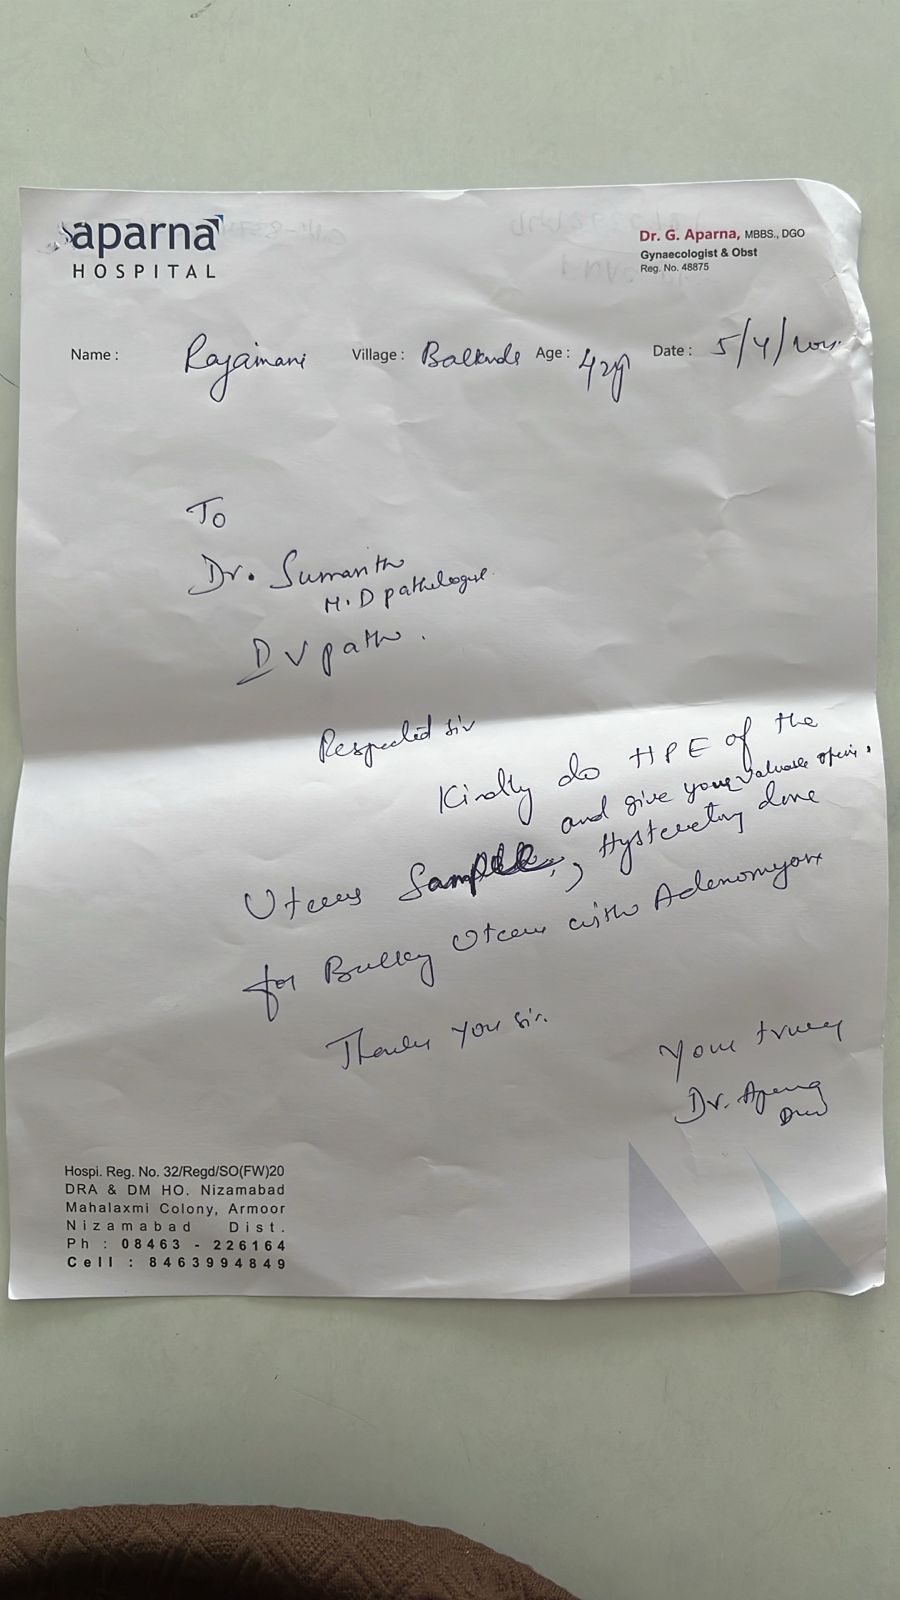 aparna
HOSPITAL
Dr. G. Aparna, MBBS., DGO
Gynaecologist & Obst
Reg. No. 48875
Name : Rajamani Village : Balkonda Age : 42y Date : 5/4/
To
Dr. Sumanth
M.D pathologist
DV path.
Respected sir
Kindly do HPE of the
and give your valuable
Uterus Sample, Hysterectomy done
for Bulky Uterus with Adenomyosis
Thank you sir.
Your truly
Dr. Aparna
Hospi. Reg. No. 32/Regd/SO(FW)20
DRA & DM HO. Nizamabad
Mahalaxmi Colony, Armoor
Nizamabad Dist.
Ph : 08463 - 226164
Cell : 8463994849